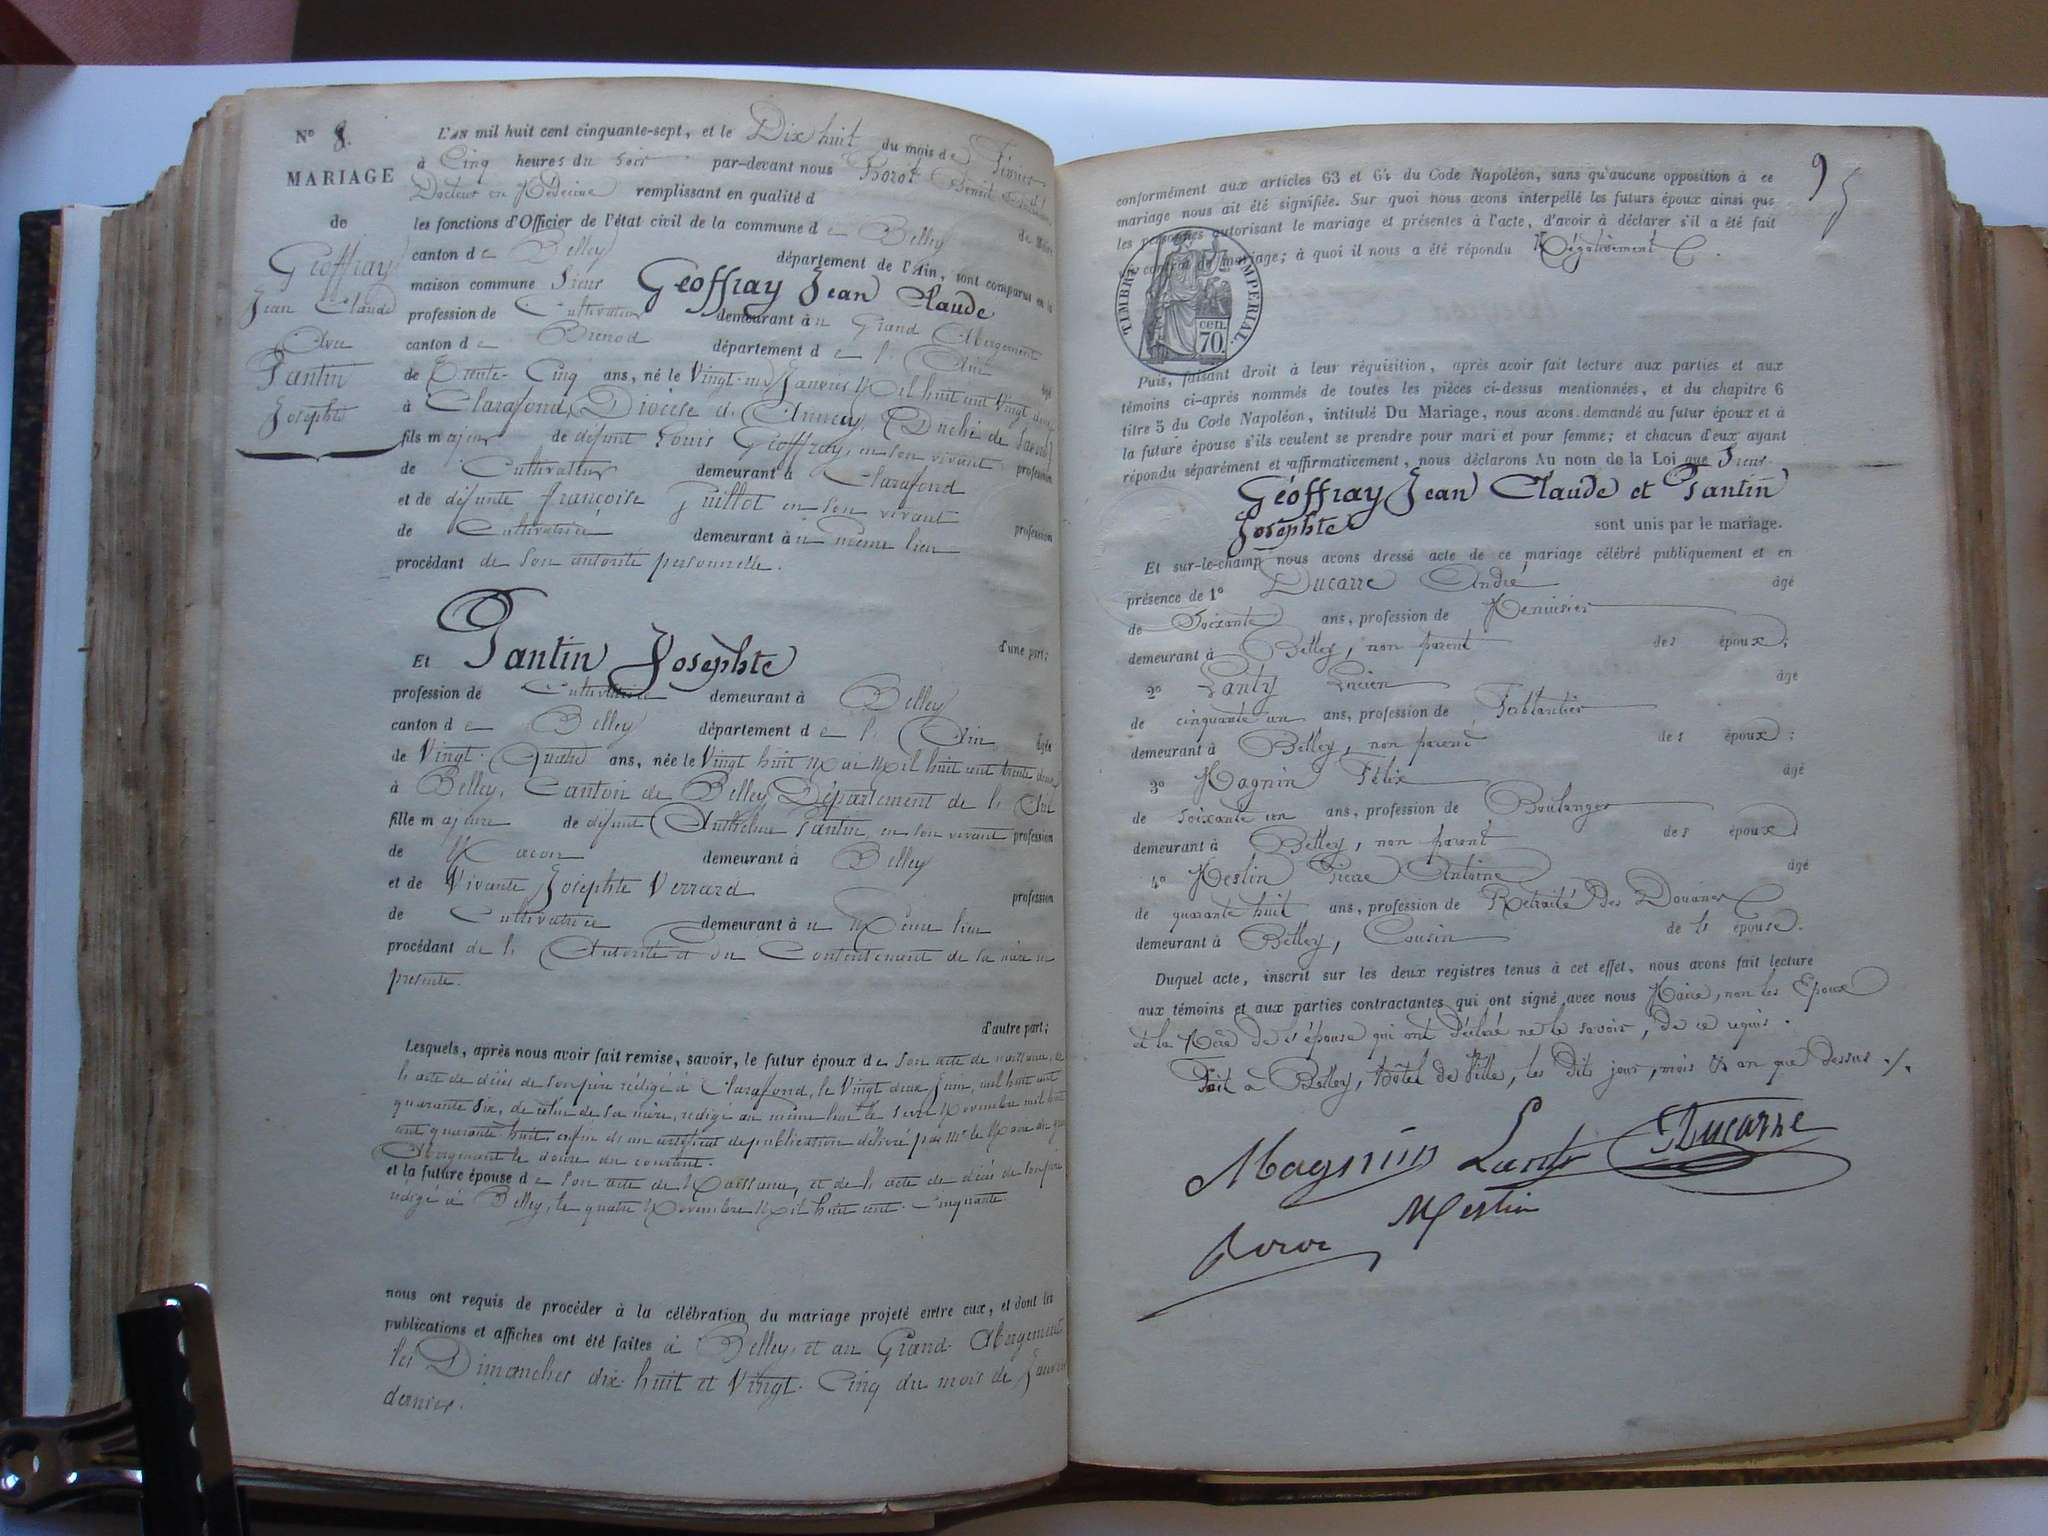 N° 8.
MARIAGE
de
Geoffray
Jean Claude
Avec
Pantin
Josephte
L'AN mil huit cent cinquante-sept, et le Dix huit du mois de Février
à Cinq heures du soir par-devant nous Horot Benoit
Docteur en Médecine remplissant en qualité d
les fonctions d'Officier de l'état civil de la commune de Belley
canton de Belley département de l'Ain, sont comparus en la
maison commune Sieur Geoffray Jean Claude
profession de Cultivateur demeurant à u Grand Abergement
canton de Brenod département de l' Ain
de Trente-Cinq ans, né le Vingt Janvier Mil huit cent Vingt
à Clarafond, Diocèse d'Annecy, Duché de Savoie
fils majeur de défunt Louis Geoffray, en son vivant profession
de Cultivateur demeurant à Clarafond
et de défunte françoise Guillot en son vivant
de Cultivatrice demeurant à u même lieu profession
procédant de son autorité personnelle.
d'une part;
Et Pantin Josephte
profession de Cultivatrice demeurant à Belley
canton de Belley département de l'Ain âgée
de Vingt-Quatre ans, née le Vingt huit Mai Mil huit cent trente deux
à Belley, Canton de Belley Département de l'Ain
fille majeure de défunt Anthelme Pantin, en son vivant profession
de Maçon demeurant à Belley
et de Vivante Josephte Verrard profession
de Cultivatrice demeurant à u Même lieu
procédant de l'Autorité et du Contentement de sa mère ici
présente.
d'autre part;
Lesquels, après nous avoir fait remise, savoir, le futur époux de son acte de naissance, de
l'acte de décès de son père rédigé à Clarafond, le Vingt deux Juin, mil huit cent
quarante six, de celui de sa mère, rédigé au même lieu le Novembre mil huit
cent quarante-huit, enfin d'un certificat de publication délivré par Mr le Maire du grand
Abergement le douze du courant.
et la future épouse de son acte de Naissance, et de l'acte de décès de son père
rédigé à Belley, le quatre Novembre Mil huit cent Cinquante
nous ont requis de procéder à la célébration du mariage projeté entre eux, et dont les
publications et affiches ont été faites à Belley, et au Grand-Abergement
les Dimanches dix-huit et Vingt-Cinq du mois de Janvier
dernier.
95
conformément aux articles 63 et 64 du Code Napoléon, sans qu'aucune opposition à ce
mariage nous ait été signifiée. Sur quoi nous avons interpellé les futurs époux ainsi que
les personnes autorisant le mariage et présentes à l'acte, d'avoir à déclarer s'il a été fait
un contrat de mariage; à quoi il nous a été répondu Négativement
TIMBRE IMPERIAL.
70 cen.
Puis, faisant droit à leur réquisition, après avoir fait lecture aux parties et aux
témoins ci-après nommés de toutes les pièces ci-dessus mentionnées, et du chapitre 6
titre 5 du Code Napoléon, intitulé Du Mariage, nous avons demandé au futur époux et à
la future épouse s'ils veulent se prendre pour mari et pour femme; et chacun d'eux ayant
répondu séparément et affirmativement, nous déclarons Au nom de la Loi que Sieur
Géoffray Jean Claude et Pantin
Josephte sont unis par le mariage.
Et sur-le-champ nous avons dressé acte de ce mariage célébré publiquement et en
présence de 1° Ducarre André âgé
de Soixante ans, profession de Menuisier
demeurant à Belley, non parent des époux;
2° Lanty Lucien âgé
de cinquante un ans, profession de Ferblantier
demeurant à Belley, non parent des époux;
3° Magnin Félix âgé
de soixante un ans, profession de Boulanger
demeurant à Belley, non parent des époux;
4° Mestin Pierre Antoine âgé
de quarante huit ans, profession de Retraité des Douanes
demeurant à Belley, Cousin de l'épouse.
Duquel acte, inscrit sur les deux registres tenus à cet effet, nous avons fait lecture
aux témoins et aux parties contractantes qui ont signé avec nous Maire, non les Epoux
et la Mère de l'épouse qui ont déclaré ne le savoir, de ce requis.
Fait à Belley, hôtel de Ville, les dits jour, mois & an que dessus ./.
Magnin Lanty Ducarre
Mestin